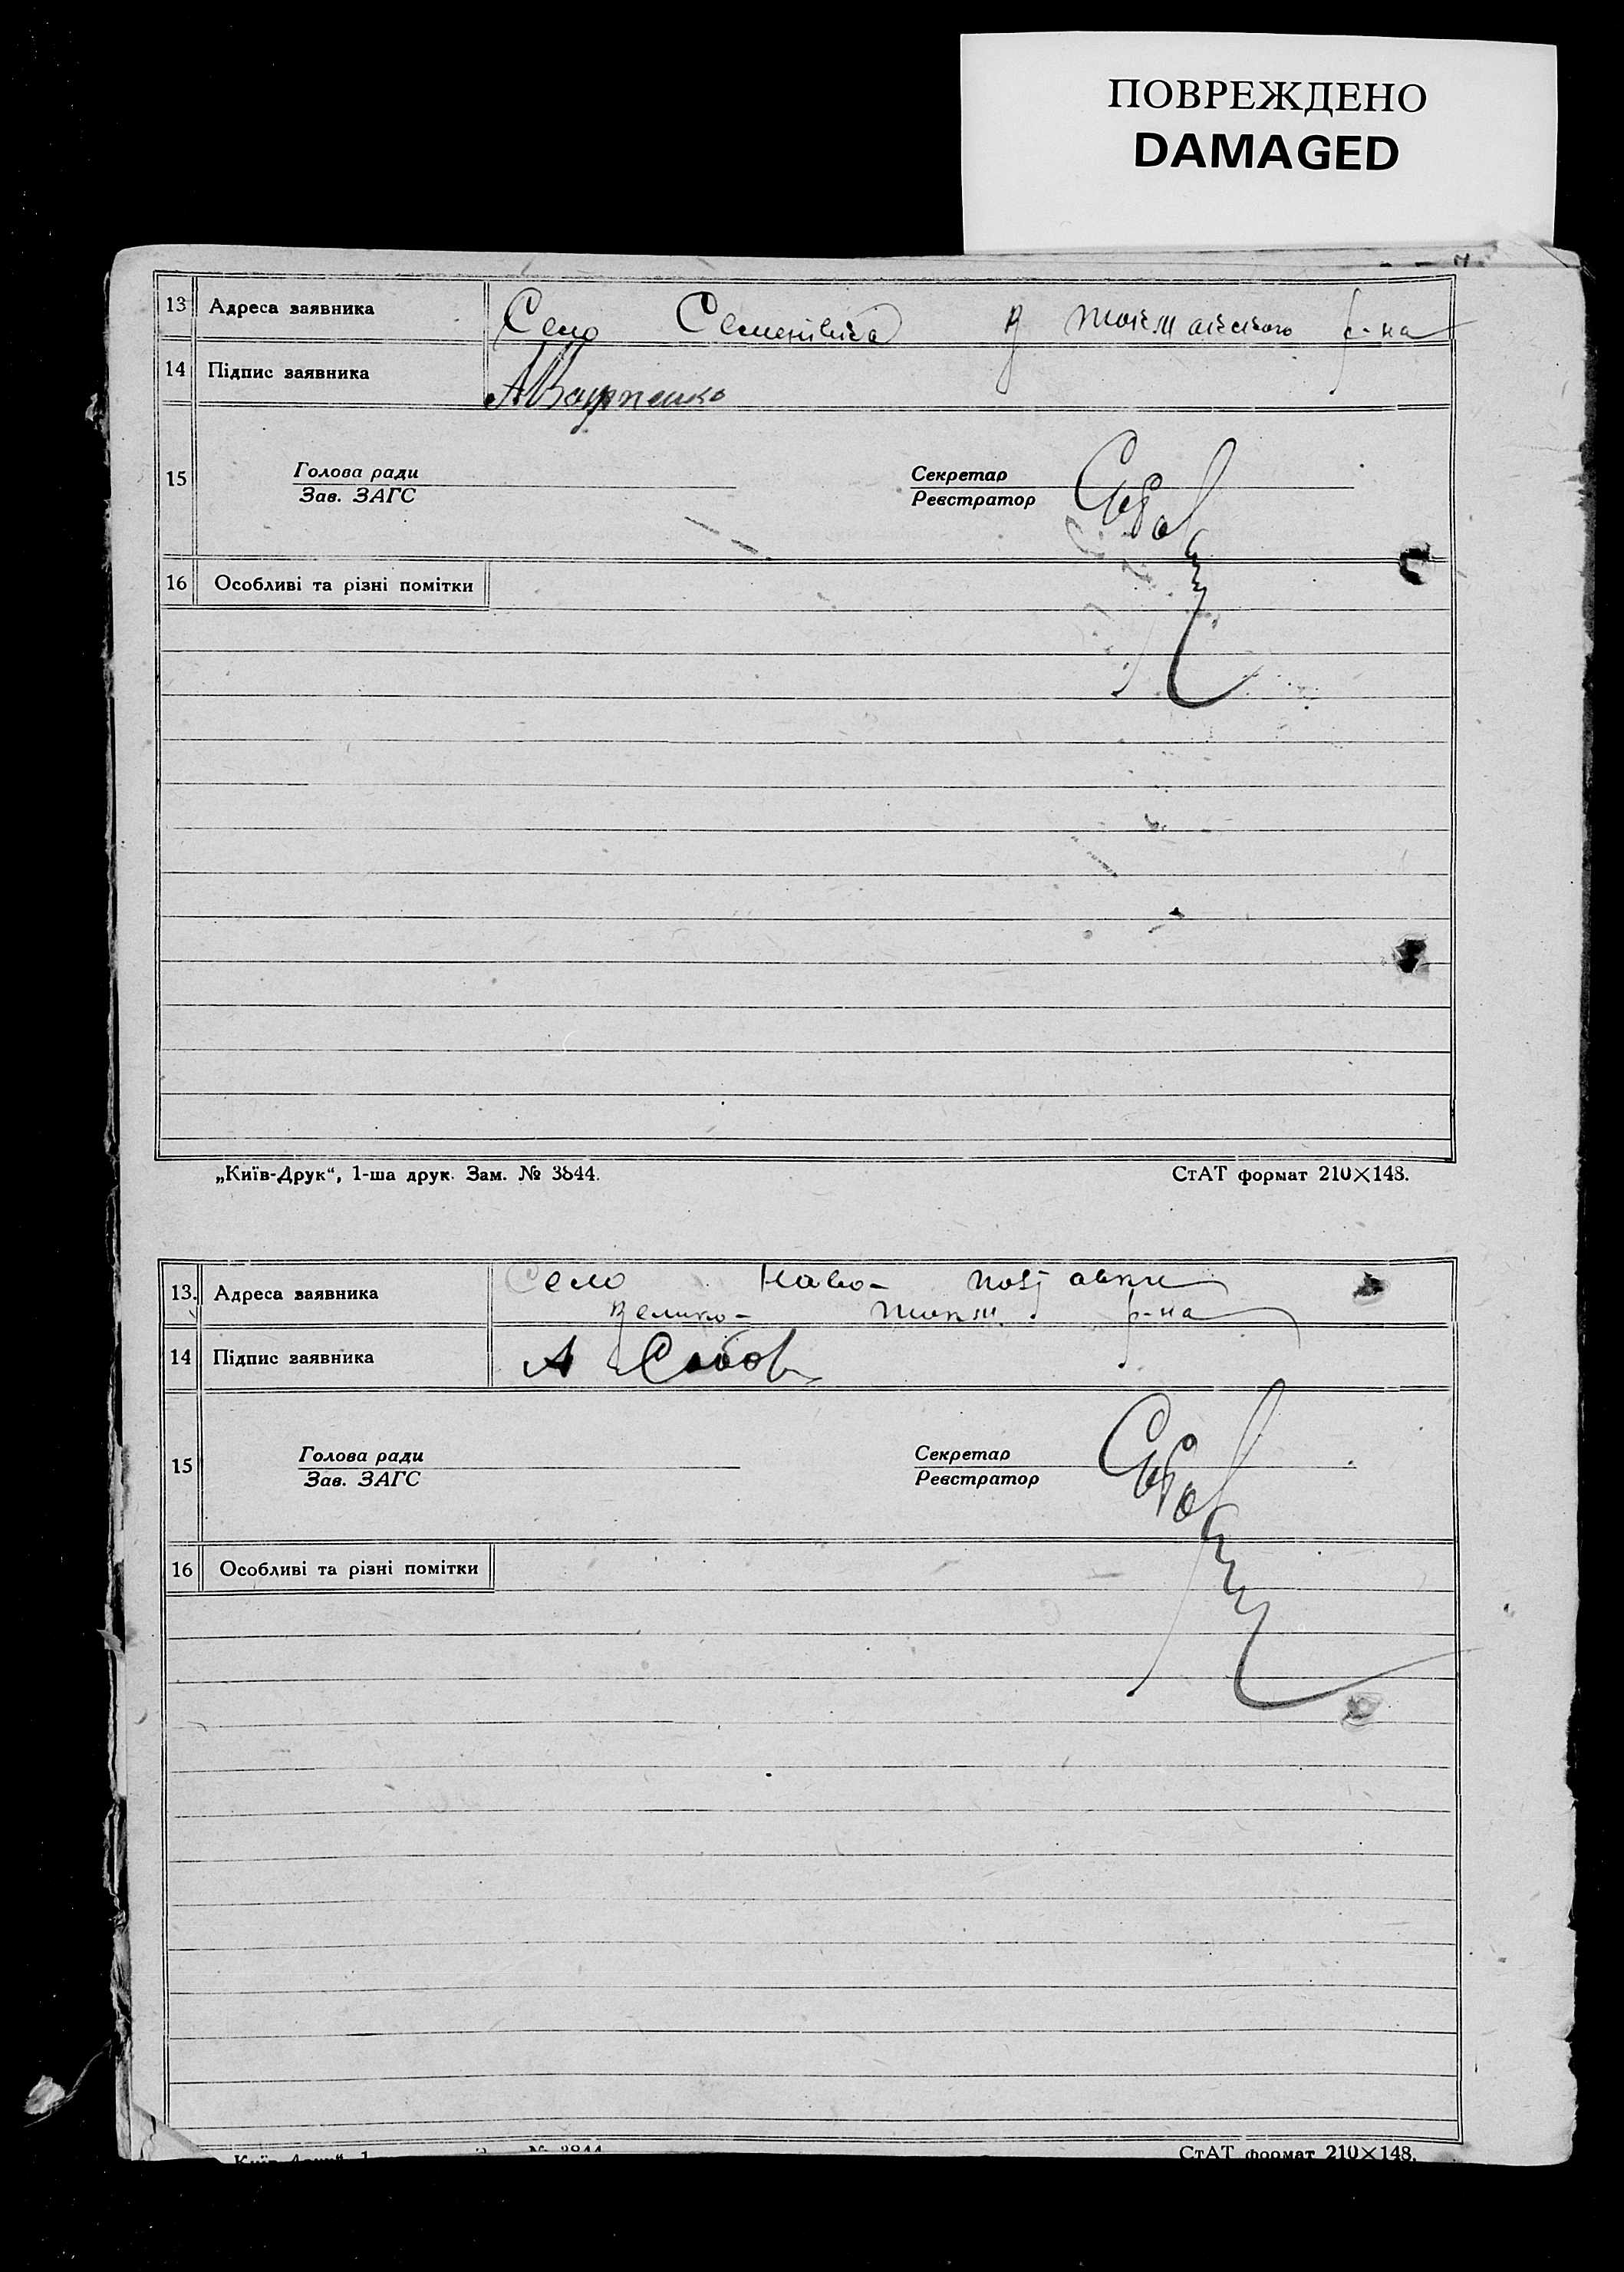 ПОВРЕЖДЕНО
DAMAGED
13 Адреса заявника Село Семенівка В Токмакського р-на
14 Підпис заявника
15 Голова ради Секретар
Зав. ЗАГС Реєстратор
16 Особливі та різні помітки
„Київ-Друк“, 1-ша друк. Зам. № 3844. СтАТ формат 210×148.
13. Адреса заявника Село Ново-
Велико- Токм. р-на
14 Підпис заявника А
15 Голова ради Секретар
Зав. ЗАГС Реєстратор
16 Особливі та різні помітки
СтАТ формат 210×148.